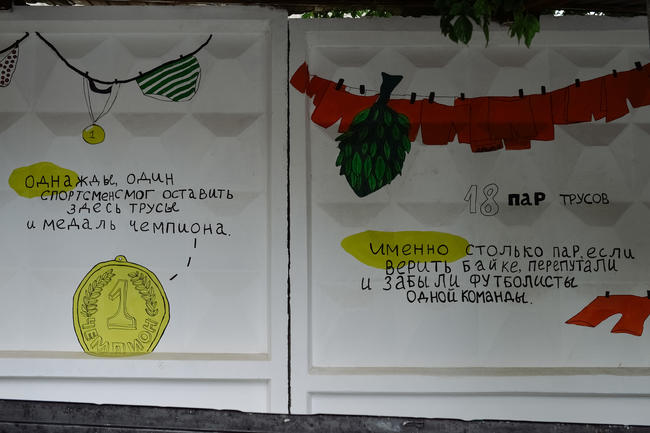 1
ОДНАЖДЫ, ОДИН
СПОРТСМЕН СМОГ ОСТАВИТЬ
ЗДЕСЬ ТРУСЫ
И МЕДАЛЬ ЧЕМПИОНА.
1
ЧЕМПИОН
18 ПАР ТРУСОВ
ИМЕННО СТОЛЬКО ПАР, ЕСЛИ
ВЕРИТЬ БАЙКЕ, ПЕРЕПУТАЛИ
И ЗАБЫЛИ ФУТБОЛИСТЫ
ОДНОЙ КОМАНДЫ.